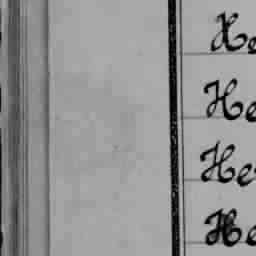 He
He
He
He